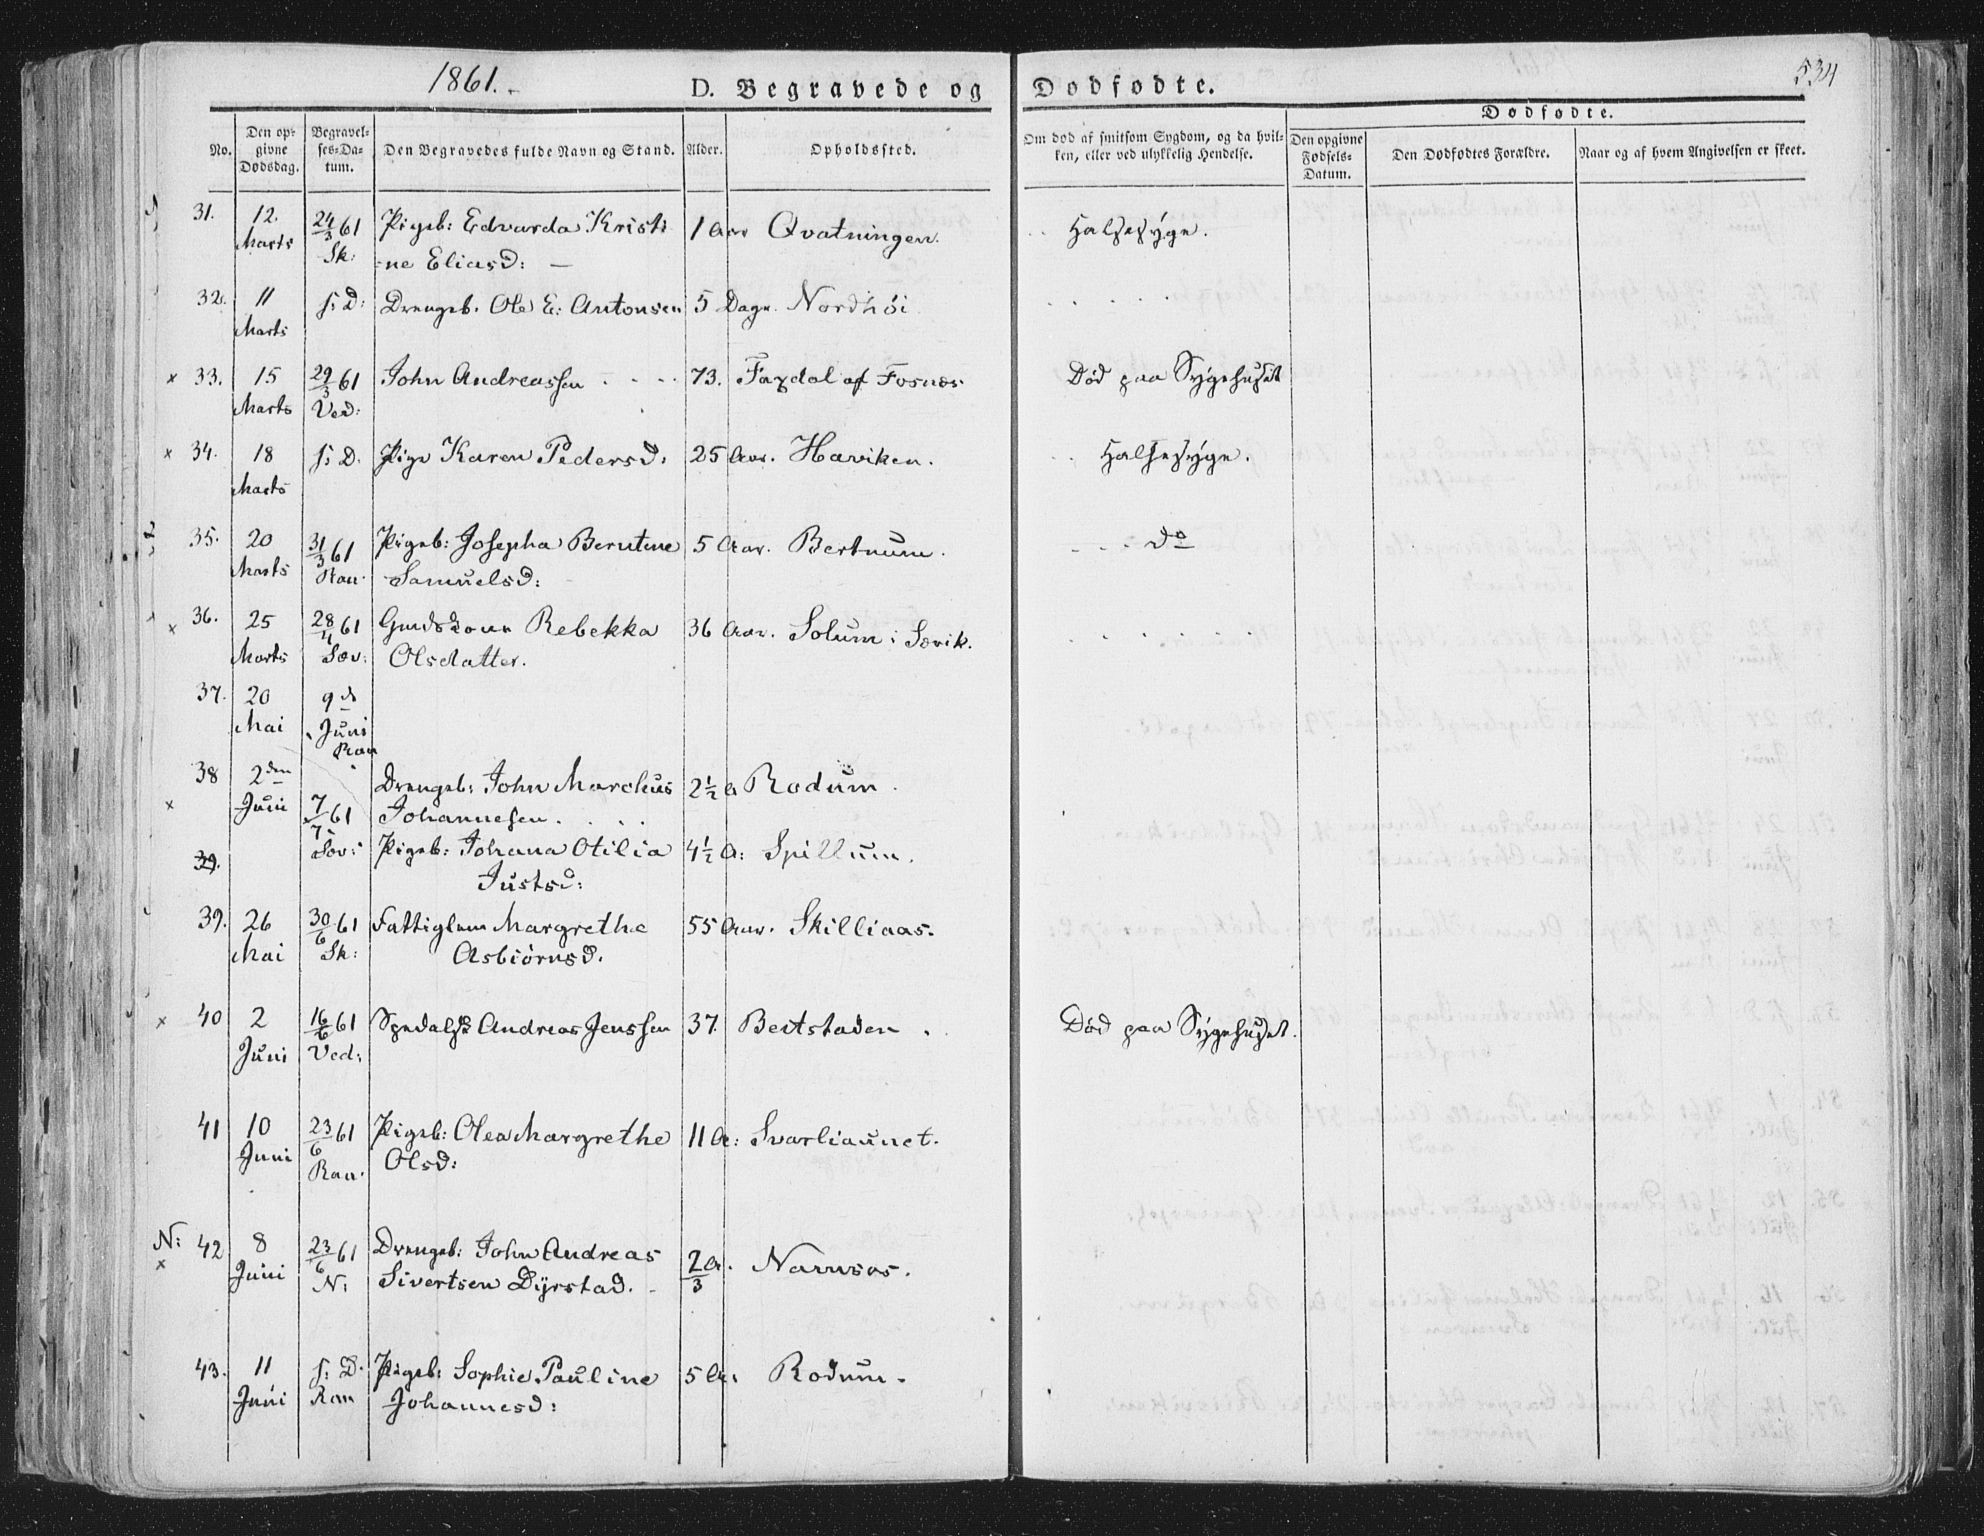 1861.
D. Begravede og Dødfødte.
534
No.
Den opgivne Dødsdag.
Begravelses-Datum.
Den Begravedes fulde Navn og Stand.
Alder.
Opholdssted.
Om død af smitsom Sygdom, og da hvilken, eller ved ulykkelig Hendelse.
Dødfødte.
Den opgivne Fødsels-Datum.
Den Dødfødtes Forældre.
Naar og af hvem Angivelsen er skeet.
31. 12. Marts 24/3 61 Sk: Pigeb: Edvarda Kristi 1 Aar Qvatningen. Halsesyge.
-ne Eliasd: —
32. 11 Marts s: D: Drengeb. Ole E. Antonsen 5 Dage. Nordhöi
× 33. 15 Marts 29/3 61 Ved: John Andreassen 73. Faxdal af Fosnæs Död paa Sygehuset
× 34. 18 Marts s: D. Pige Karen Pedersd. 25 Aar. Haviken. Halsesyge.
35. 20 Marts 31/3 61 Ran. Pigeb: Josepha Berntine 5 Aar. Bertnum. do
Samuelsd:
× 36. 25 Marts 28/4 61 Sæv: Rebekka 36 Aar. Solum i Særik.
Olsdatter.
37. 20 Mai 9de Juni Ran
38 2den Juni Drengeb: John Marchus 2½ A Rodum.
× 7/7 61 Johannesen.
39. Sæv: Pigeb: Johana Otilia 4½ A: Spillum.
Justsd:
39. 26 Mai 30/6 61 Sk: Fattiglem Margrethe 55 Aar. Skilliaas.
Asbiörnsd.
× 40 2 Juni 16/6 61 Ved: Spedalsk Andreas Jenssen 37. Beitstaden. Död paa Sygehuset.
41 10 Juni 23/6 61 Ran. Pigeb: Olea Margrethe 11 A: Svarliaunet.
Olsd:
N: × 42 8 Juni 23/6 61 N: Drengeb: John Andreas 2/3 A. Namsos.
Sivertsen Dyrstad.
43. 11 Juni s: D. Ran Pigeb: Sophie Pauline 5 A: Rodum.
Johannesd: